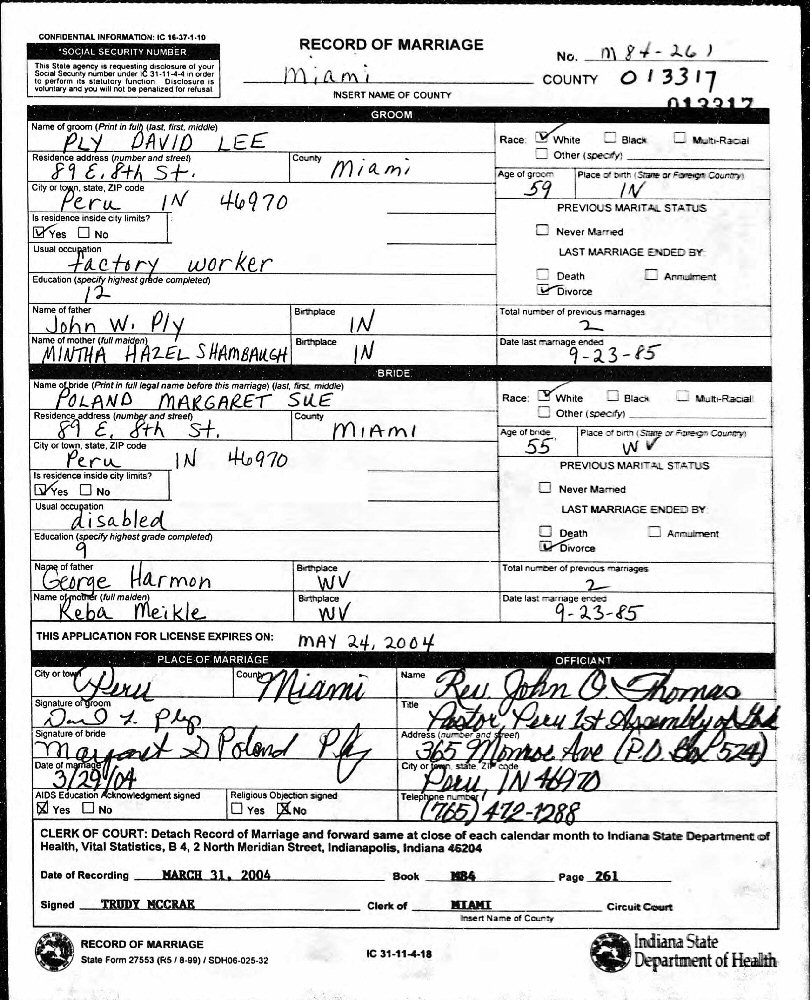 CONFIDENTIAL INFORMATION: IC 16-37-1-10
*SOCIAL SECURITY NUMBER
This State agency is requesting disclosure of your
Social Security number under IC 31-11-4-4 in order
to perform its statutory function. Disclosure is
voluntary and you will not be penalized for refusal.
RECORD OF MARRIAGE
No. M 84-261
Miami COUNTY 013317
INSERT NAME OF COUNTY
013317
GROOM
Name of groom (Print in full) (last, first, middle)
PLY DAVID LEE
Race: White Black Multi-Racial
Other (specify)
Residence address (number and street) County
89 E. 8th St. Miami
Age of groom Place of birth (State or Foreign Country)
59 IN
City or town, state, ZIP code
Peru IN 46970
PREVIOUS MARITAL STATUS
Is residence inside city limits?
Yes No
Never Married
Usual occupation
factory worker
LAST MARRIAGE ENDED BY:
Death Annulment
Divorce
Education (specify highest grade completed)
12
Name of father Birthplace
John W. Ply IN
Total number of previous marriages
2
Name of mother (full maiden) Birthplace
MINTHA HAZEL SHAMBAUGH IN
Date last marriage ended
9-23-85
BRIDE
Name of bride (Print in full legal name before this marriage) (last, first, middle)
POLAND MARGARET SUE
Race: White Black Multi-Racial
Other (specify)
Residence address (number and street) County
89 E. 8th St. MIAMI
Age of bride Place of birth (State or Foreign Country)
55 WV
City or town, state, ZIP code
Peru IN 46970
PREVIOUS MARITAL STATUS
Is residence inside city limits?
Yes No
Never Married
Usual occupation
disabled
LAST MARRIAGE ENDED BY:
Death Annulment
Divorce
Education (specify highest grade completed)
9
Name of father Birthplace
George Harmon WV
Total number of previous marriages
2
Name of mother (full maiden) Birthplace
Reba Meikle WV
Date last marriage ended
9-23-85
THIS APPLICATION FOR LICENSE EXPIRES ON: MAY 24, 2004
PLACE OF MARRIAGE OFFICIANT
City or town County
Peru Miami
Name
Rev. John O. Thomas
Signature of groom
Title
Pastor, Peru 1st Assembly of God
Signature of bride
Margaret S Poland Ply
Address (number and street)
365 Monroe Ave (P.O. Box 524)
Date of marriage
3/29/04
City or town, state, ZIP code
Peru, IN 46970
AIDS Education Acknowledgment signed Religious Objection signed
Yes No Yes No
Telephone number
(765) 472-1288
CLERK OF COURT: Detach Record of Marriage and forward same at close of each calendar month to Indiana State Department of
Health, Vital Statistics, B 4, 2 North Meridian Street, Indianapolis, Indiana 46204
Date of Recording MARCH 31, 2004 Book M84 Page 261
Signed TRUDY MCCRAE Clerk of MIAMI Circuit Court
Insert Name of County
RECORD OF MARRIAGE
State Form 27553 (R5 / 8-99) / SDH06-025-32
IC 31-11-4-18
Indiana State
Department of Health